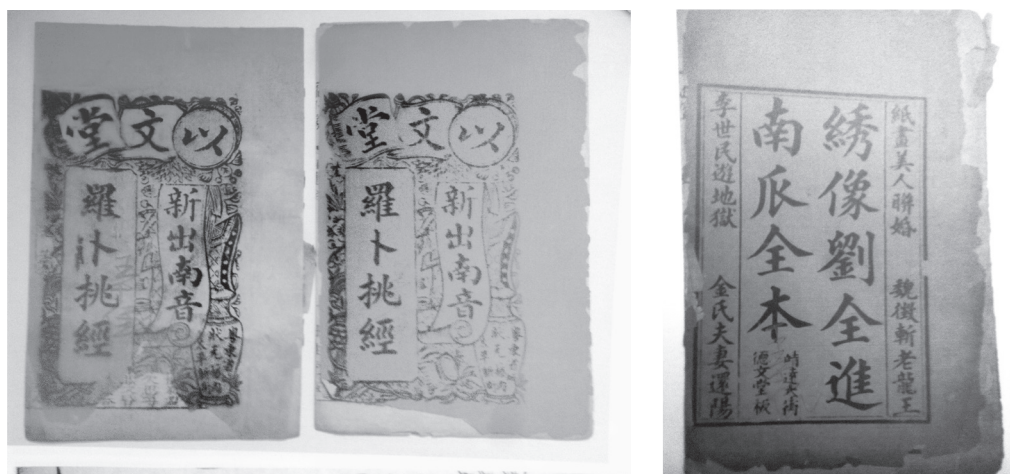 以文堂
新出南音
羅卜挑經
狀元坊內
以文堂
新出南音
羅卜挑經
狀元坊內
紙畫美人聯婚 魏徵斬老龍王
綉像劉全進
南瓜全本
德文堂板
李世民遊地獄 金氏夫妻還陽